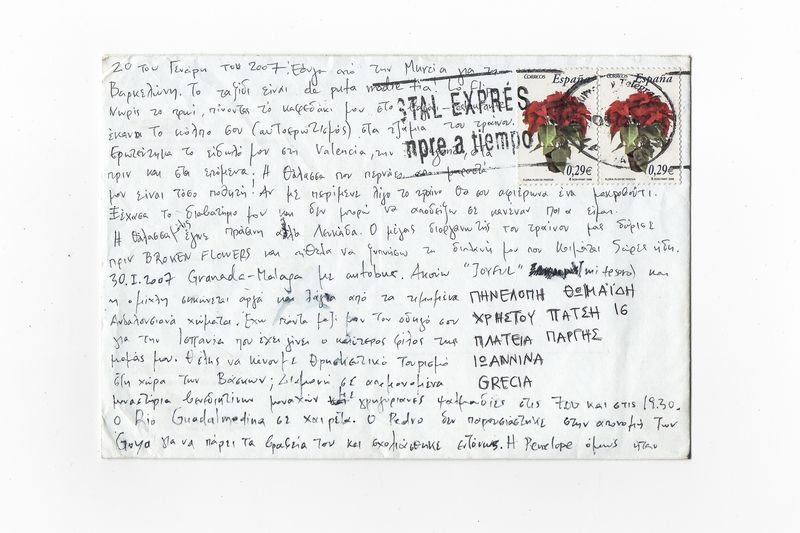 20 του Γενάρη του 2007. Έφυγα από την Murcia για τη
Βαρκελώνη. Το ταξίδι είναι de puta madre για το
Νωρίς το πρωί, πίνοντας το καφεδάκι μου στο
έκανα το κόλπο σου (αυτοερωτισμός) στα τζάμια του τραίνου.
Ερωτεύτηκα το είδωλό μου στη Valencia, την στα
πριν και στα επόμενα. Η θάλασσα που περνάει από μπροστά
μου είναι τόσο ποθητή. Αν με περίμενε λίγο το τραίνο θα σου αφιέρωνα ένα μακροβούτι.
Ξέχασα το διαβατήριό μου και δεν μπορώ να αποδείξω σε κανέναν ποια είμαι.
Η θάλασσα μόλις έγινε πράσινη Λευκάδα. Ο μέγας διοργανωτής του τραίνου μας δώρισε
πριν BROKEN FLOWERS και ήθελα να ξυπνήσω τη διπλανή μου που κοιμάται 5 ώρες ήδη.
30.I.2007 Granada-Malaga με autobus. Ακούω "JOYFUL" (mi tesoro) και
η ομίχλη σηκώνεται αργά και από τα τιμημένα
Ανδαλουσιανά χώματα. Έχω πάντα μαζί μου τον οδηγό σου
για την Ισπανία που έχει γίνει ο καλύτερος φίλος της
μαμάς μου. Θέλεις να κάνουμε θρησκευτικό τουρισμό
στη χώρα των Βάσκων; Διαμονή σε απομονωμένα
μοναστήρια βενεδικτίνων μοναχών γρηγοριανές ψαλμωδίες στις 7:00 και στις 19.30.
Ο Rio Guadalmedina σε χαιρετά. Ο Pedro δεν παρουσιάστηκε στην απονομή των
Goya για να πάρει τα βραβεία του και σχολιάστηκε εντόνως. Η Penelope όμως ήταν
ΠΗΝΕΛΟΠΗ ΘΩΜΑΪΔΗ
ΧΡΗΣΤΟΥ ΠΑΤΣΗ 16
ΠΛΑΤΕΙΑ ΠΑΡΓΗΣ
ΙΩΑΝΝΙΝΑ
GRECIA
STAL EXPRÉS
mpre a tiempo
CORREOS España
0,29€
CORREOS España
0,29€